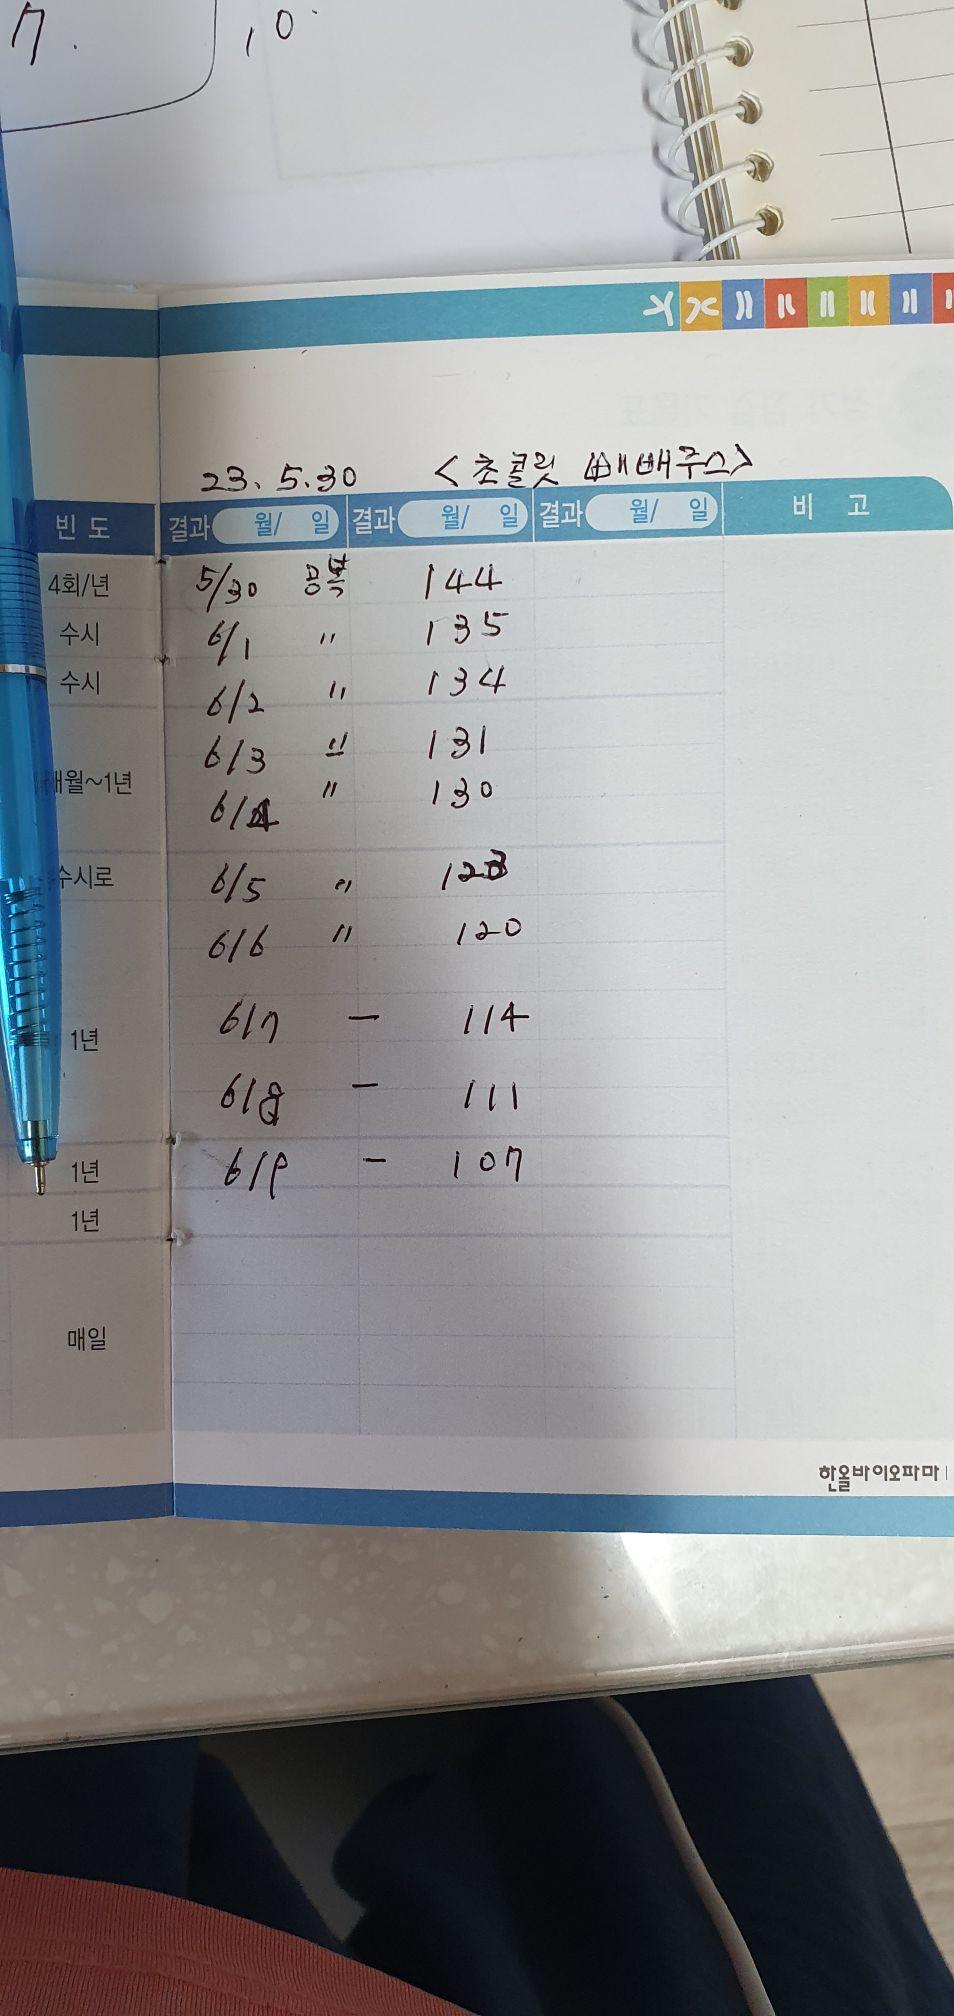 7.
10.
23. 5.30 <초콜릿 빼빼주스>
빈 도 결과 월/ 일 결과 월/ 일 결과 월/ 일 비 고
4회/년 5/30 공복 144
수시 6/1 〃 135
수시 6/2 〃 134
6/3 〃 131
개월~1년 6/4 〃 130
수시로 6/5 〃 123
6/6 〃 120
1년 6/7 - 114
6/8 - 111
1년 6/9 - 107
1년
매일
한올바이오파마